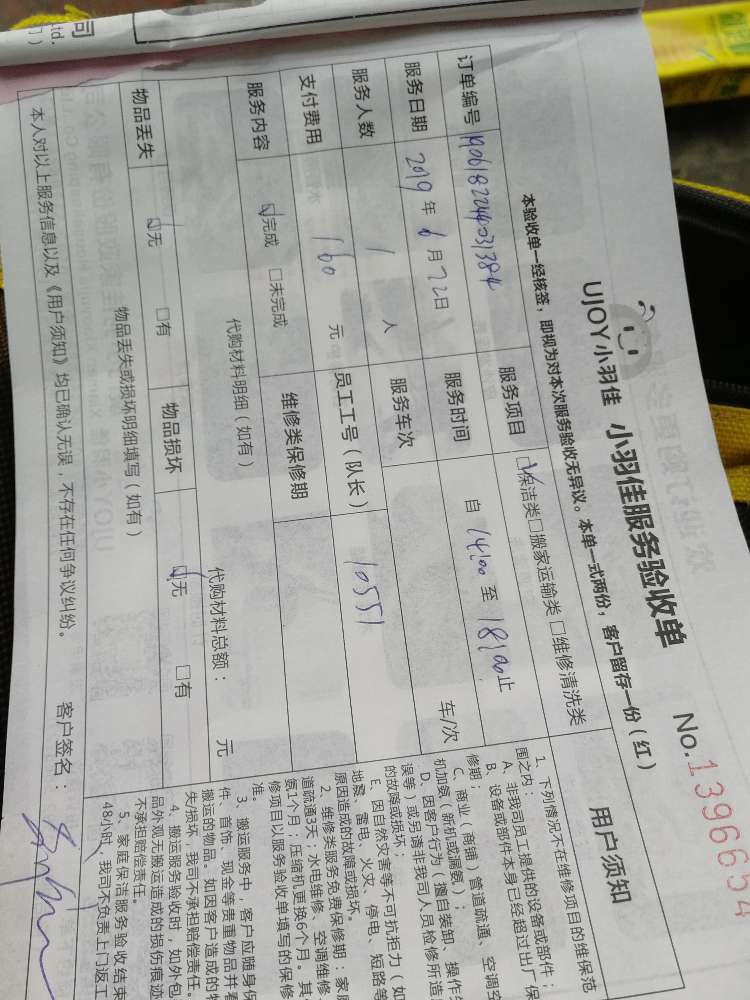 司
td.
UJOY小羽佳 小羽佳服务验收单
No.1396654
本验收单一经核签，即视为对本次服务验收无异议。本单一式两份，客户留存一份（红）
订单编号 服务项目 ☑保洁类□搬家运输类□维修清洗类
服务日期 2019年6月22日 服务时间 自14:00至18:00止
服务人数 1人 服务车次 车/次
支付费用 160元 员工工号（队长） 10551
服务内容 ☑完成 □未完成 维修类保修期
代购材料明细（如有） 代购材料总额： 元
物品丢失 ☑无 □有 物品损坏 ☑无 □有
物品丢失或损坏明细填写（如有）
本人对以上服务信息以及《用户须知》均已确认无误，不存在任何争议纠纷。 客户签名：
用户须知
1、下列情况不在维修项目的维保范
围之内：
A、非我司员工提供的设备或部件；
B、设备或部件本身已经超过出厂保
修期；
C、商业（商铺）管道疏通、空调空
机加氨（新机或漏氨）；
D、因客户行为（擅自装卸、操作失
误等）或另请非我司人员检修所造
的故障或损坏；
E、因自然灾害等不可抗拒力（如
地震、雷电、火灾、停电、短路等
原因造成的故障或损坏。
2、维修类服务免费保修期：家庭
道疏通3天；水电维修、空调维修
氨1个月；压缩机更换6个月。其
修项目以服务验收单填写的保修
准。
3、搬运服务中，客户应随身保
件、首饰、现金等贵重物品并看
搬运的物品。如因客户造成的物
失/损坏，我司不承担赔偿责任。
4、搬运服务验收时，如外包
品外观无搬运造成的损伤痕迹
不承担赔偿责任。
5、家庭保洁服务验收结束
48小时，我司不负责上门返工